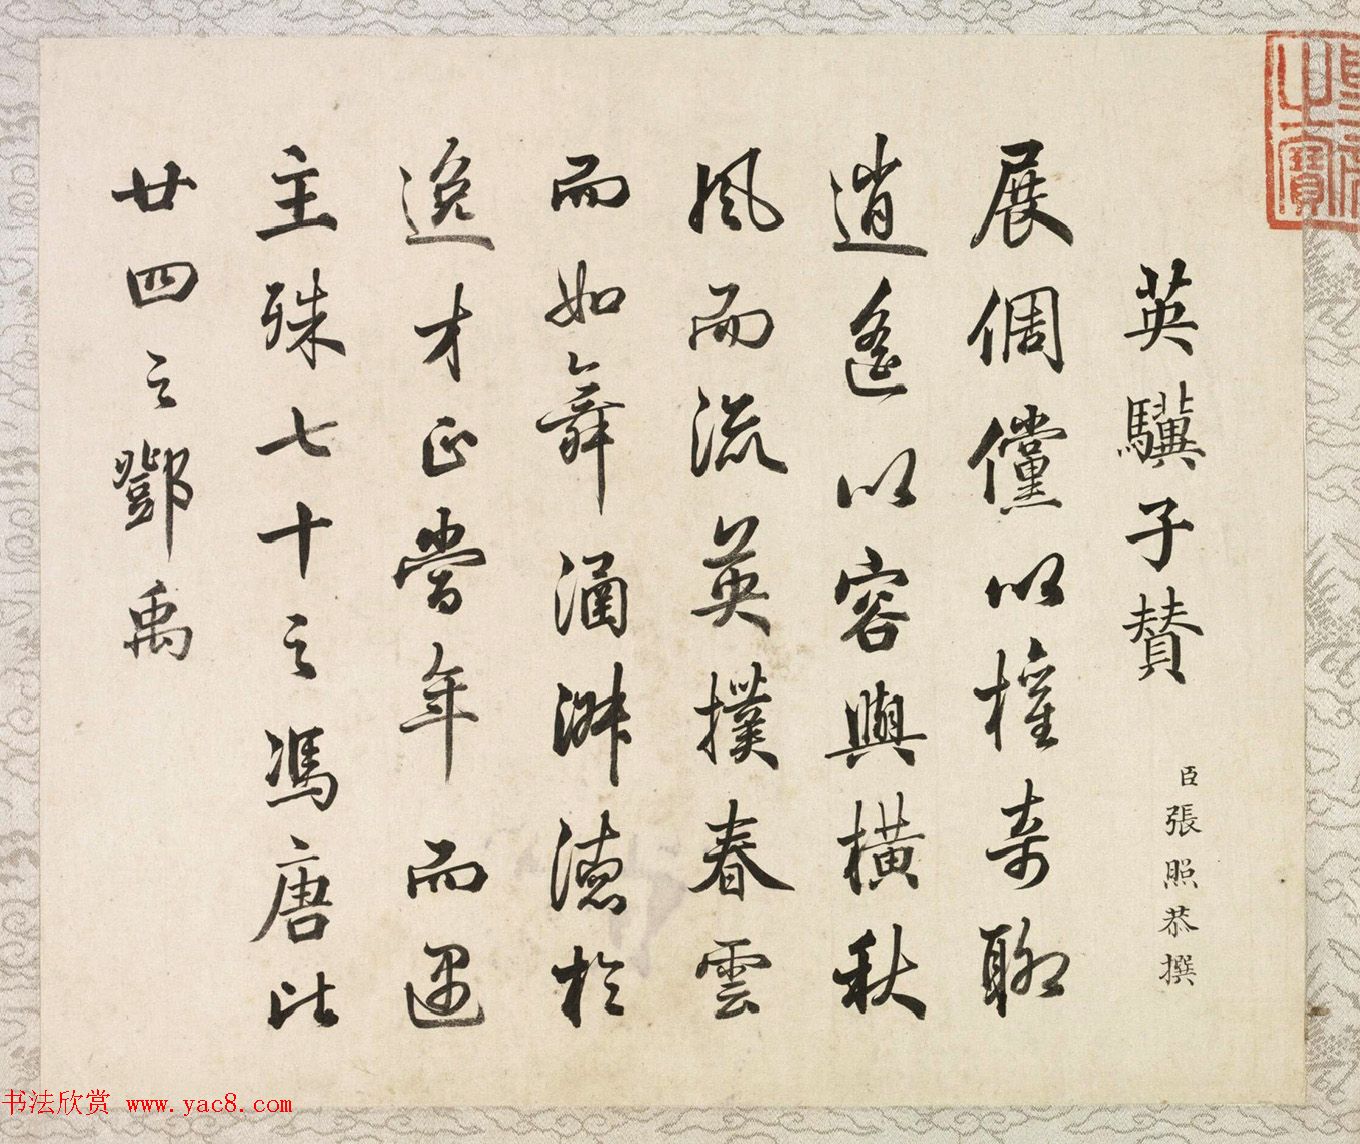 英驥子贊
臣張照恭撰
展倜儻以權奇聊
逍遙以容與橫秋
風而流英撲春雲
而如舞涵淋德於
逸才正當年而遇
主殊七十之馮唐比
廿四之鄧禹
之寶
书法欣赏 www.yac8.com